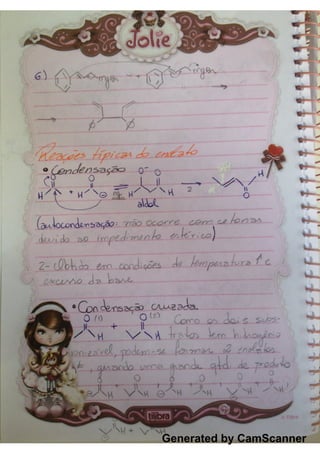 Jolie
6)
Reações típicas do enolato
• Condensação
O O O⁻ O
H H H H
2
aldol
O
H
(autocondensação: não ocorre com cetonas
devido ao impedimento estérico)
2- Obtido em condições de temperatura ↑ e
excesso da base
• Condensação cruzada
O (1) + O (2) Como os dois subs-
H H tratos tem hidrogênio
ionizável, podem-se formar 2 enolatos
, gerando uma grande qtd. de produto
tilibra
Generated by CamScanner